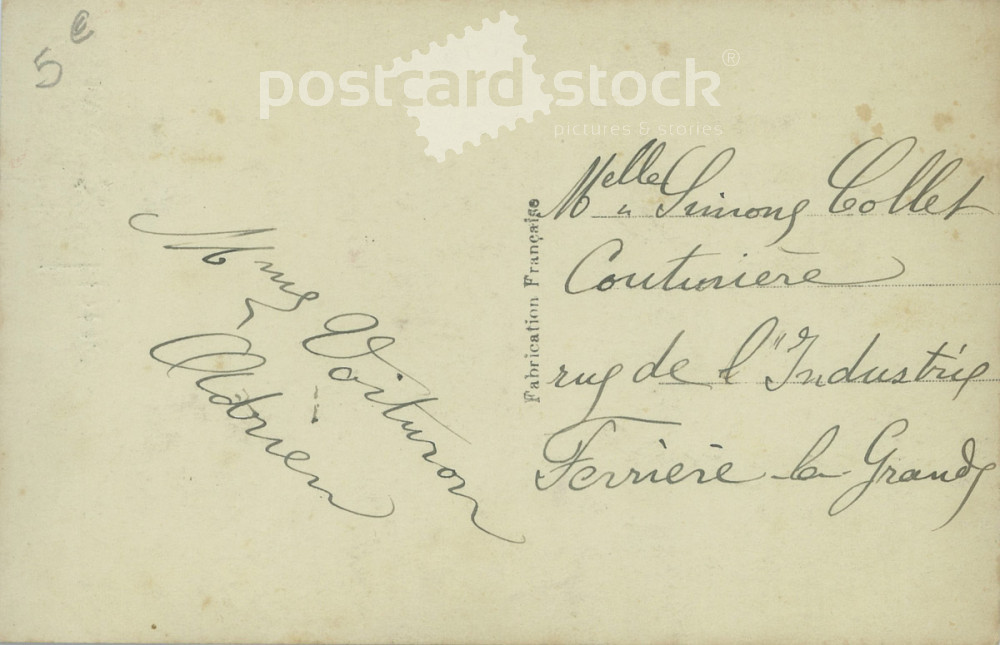 5 €
postcard stock®
pictures & stories
Melle Simone Collet
Couturière
rue de l'Industrie
Ferrière la Grande
Fabrication Française
Mme Voituron
Adrien